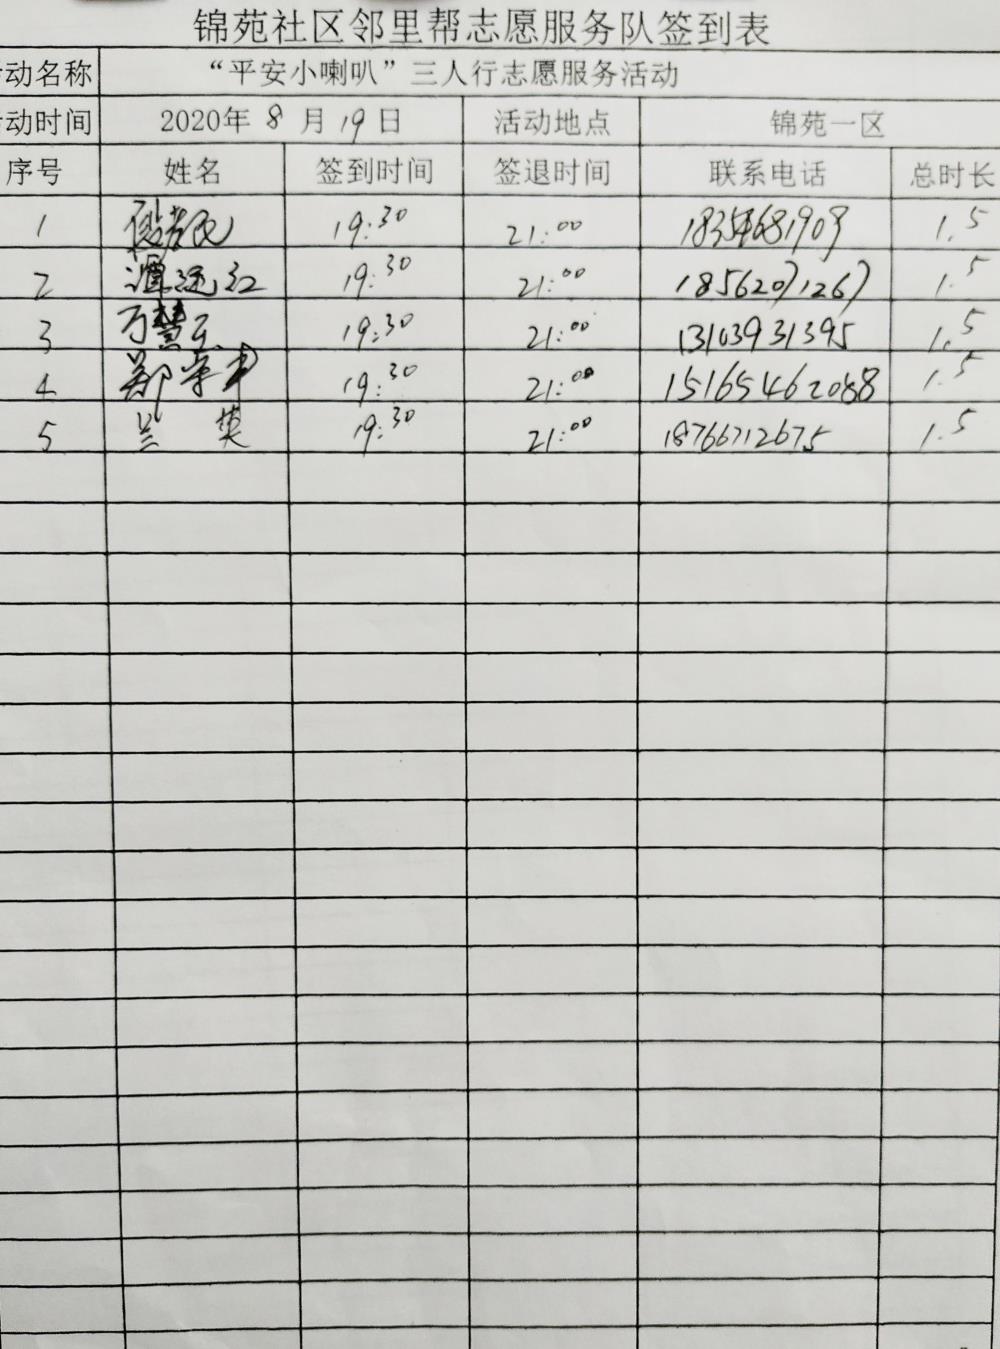 锦苑社区邻里帮志愿服务队签到表
动名称 “平安小喇叭”三人行志愿服务活动
动时间 2020年 8 月 19 日 活动地点 锦苑一区
序号 姓名 签到时间 签退时间 联系电话 总时长
1 19:30 21:00 18354681909 1.5
2 19:30 21:00 18562071267 1.5
3 万慧 19:30 21:00 13103931395 1.5
4 郑 19:30 21:00 15165462088 1.5
5 兰英 19:30 21:00 18766712675 1.5